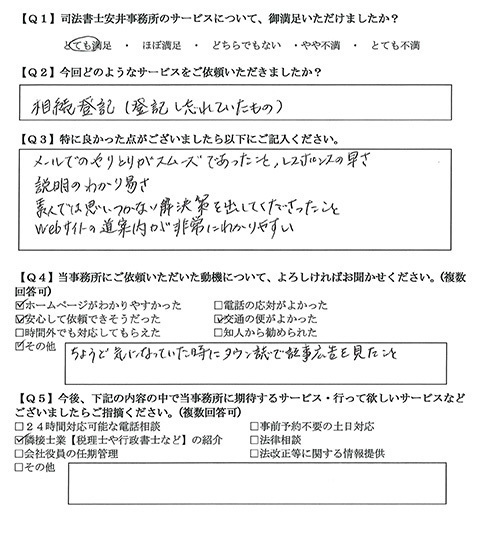 【Q1】司法書士安井事務所のサービスについて、御満足いただけましたか？
とても満足 ・ ほぼ満足 ・ どちらでもない ・やや不満 ・ とても不満
【Q2】今回どのようなサービスをご依頼いただきましたか？
相続登記（登記し忘れていたもの）
【Q3】特に良かった点がございましたら以下にご記入ください。
メールでのやりとりがスムーズであったこと，レスポンスの早さ
説明のわかり易さ
素人では思いつかない解決策を出してくださったこと
Webサイトの道案内が非常にわかりやすい
【Q4】当事務所にご依頼いただいた動機について、よろしければお聞かせください。(複数
回答可)
☑ホームページがわかりやすかった □電話の応対がよかった
☑安心して依頼できそうだった ☑交通の便がよかった
□時間外でも対応してもらえた □知人から勧められた
☑その他 ちょうど気になっていた時にタウン誌で記事広告を見たこと
【Q5】今後、下記の内容の中で当事務所に期待するサービス・行って欲しいサービスなど
ございましたらご指摘ください。(複数回答可)
□24時間対応可能な電話相談 □事前予約不要の土日対応
☑隣接士業【税理士や行政書士など】の紹介 □法律相談
□会社役員の任期管理 □法改正等に関する情報提供
□その他